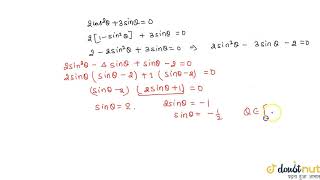 2cos²θ + 3sinθ = 0
2[1-sin²θ] + 3sinθ = 0
2-2sin²θ + 3sinθ = 0 ⇒ 2sin²θ - 3sinθ - 2 = 0
2sin²θ - 4sinθ + sinθ - 2 = 0
2sinθ (sinθ-2) + 1 (sinθ-2) = 0
(sinθ-2) (2sinθ+1) = 0
sinθ = 2. 2sinθ = -1 θ ∈ [
sinθ = -1/2
doubtnut